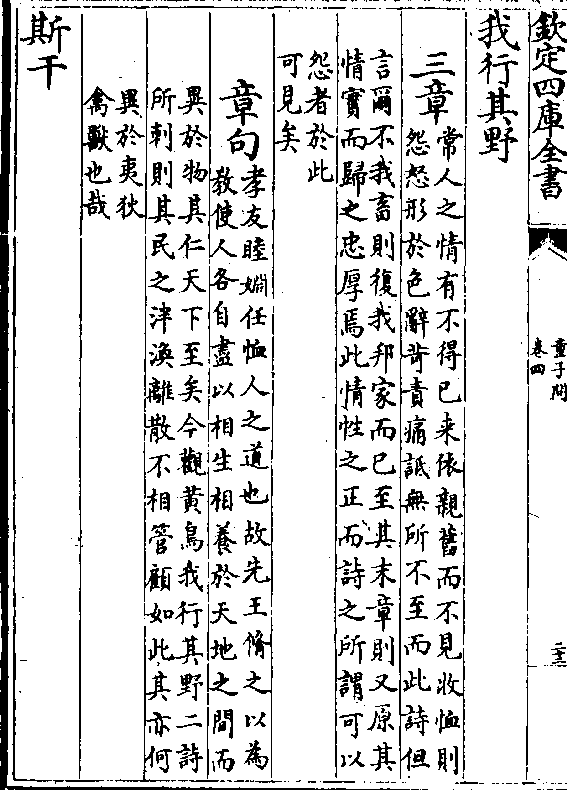 欽定四庫全書
童子問
卷四
二十三
我行其野
三章
常人之情有不得已来依親舊而不見收恤則
怨怒形於色辭苛責痛詆無所不至而此詩但
言爾不我畜則復我邦家而已至其末章則又原其
情實而歸之忠厚焉此情性之正而詩之所謂可以
怨者於此
可見矣
章句
孝友睦婣任恤人之道也故先王脩之以為
教使人各自盡以相生相養於天地之間而
異於物其仁天下至矣今觀黃鳥我行其野二詩
所刺則其民之渙離散不相管顧如此其亦何
異於夷狄
禽獸也哉
斯干